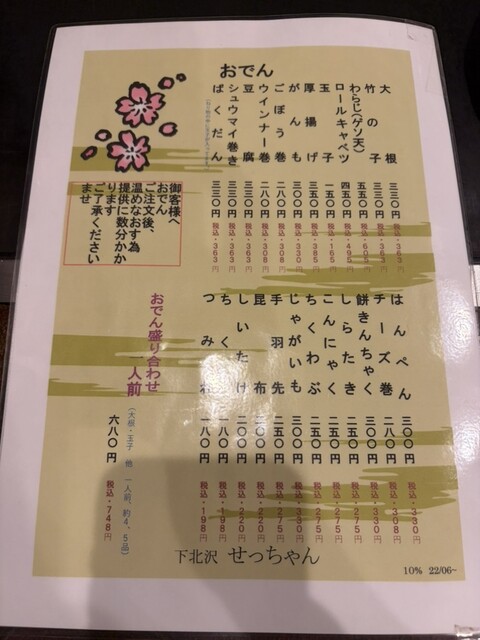 おでん
大根 三三〇円 税込・363円
竹の子 三三〇円 税込・363円
わらじ(ゲソ天) 五五〇円 税込・605円
ロールキャベツ 四五〇円 税込・495円
玉子 一五〇円 税込・165円
厚揚げ 三五〇円 税込・385円
がんも 三〇〇円 税込・330円
ごぼう巻 二八〇円 税込・308円
ウインナー巻 二八〇円 税込・308円
豆腐 三三〇円 税込・363円
シュウマイ巻き 三三〇円 税込・363円
ばくだん 三三〇円 税込・363円
御客様へ
おでん
ご注文後、
温めなおす為
提供に数分かか
ります
ご了承ください
ませ
はんぺん 三〇〇円 税込・330円
チーズ巻 二八〇円 税込・308円
餅きんちゃく 三〇〇円 税込・330円
しらたき 二五〇円 税込・275円
こんにゃく 二五〇円 税込・275円
ちくわぶ 二五〇円 税込・275円
じゃがいも 三〇〇円 税込・330円
手羽先 二五〇円 税込・275円
昆布 二〇〇円 税込・220円
しいたけ 二〇〇円 税込・220円
ちくわ 一八〇円 税込・198円
つみれ 一八〇円 税込・198円
おでん盛り合わせ
一人前
(大根・玉子 他 一人前、約4、5品)
六八〇円 税込・748円
下北沢 せっちゃん
10% 22/06~